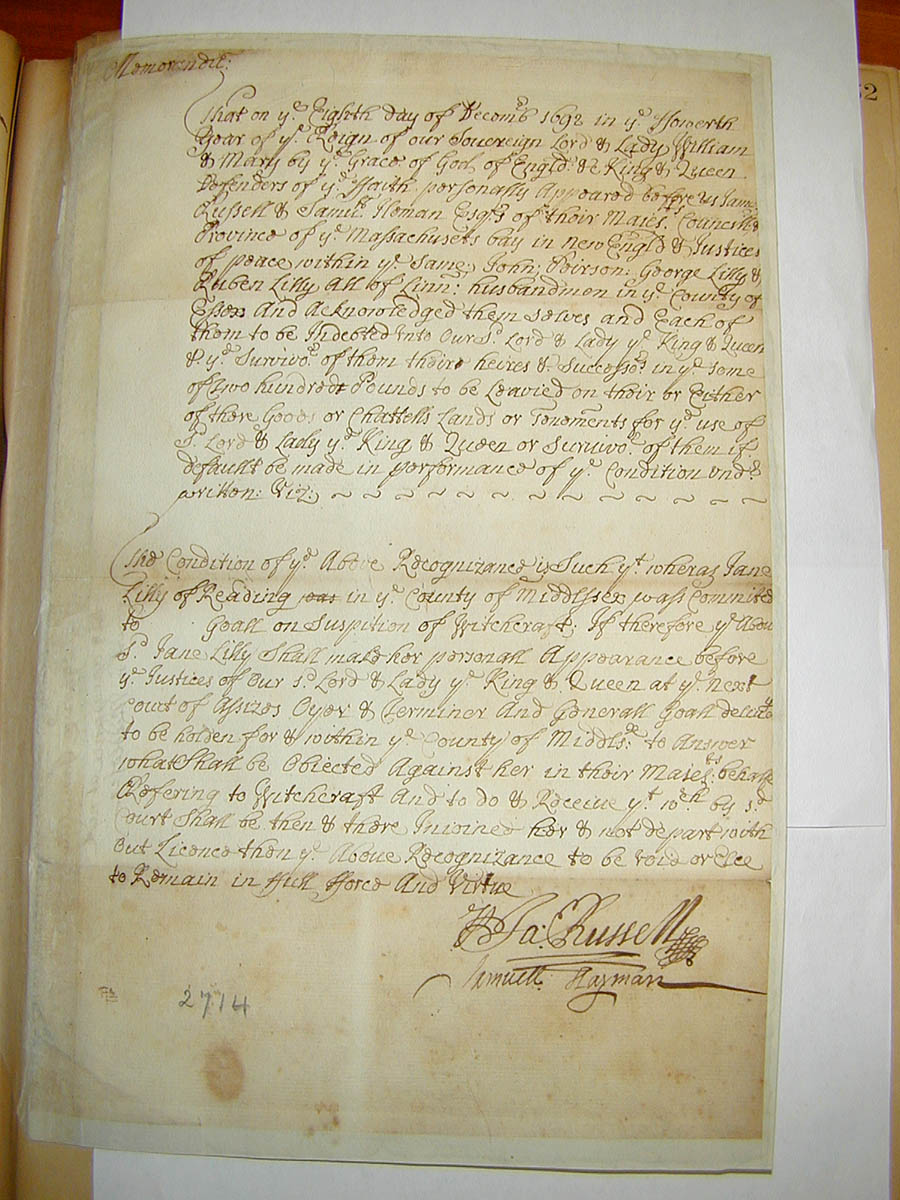 Memorandū:
That on yᵉ Eighth day of Decembʳ 1692 in yᵉ ffowerth
Year of yᵉ Reign of our Sovereign Lord & Lady William
& Mary by yᵉ Grace of God of Engld: &c King & Queen
Defenders of yᵉ ffaith personally Appeared before us Jams
Russell & Samˡˡ Heman Esqʳˢ of their Maiesᵗˢ Councill &
Province of yᵉ Massachusets bay in new Engld & Justices
of peace within yᵉ Same; John Peirson: George Lilly &
Ruben Lilly All of Linn: husbandmen in yᵉ County of
Essex And Acknowledged them selves and Each of
them to be Indebted Unto Our Sᵈ Lord & Lady yᵉ King & Queen
& yᵉ Survivoʳ of them theire heires & Successoʳˢ in yᵉ some
of Two hundred Pounds to be Leavied on their or Either
of there Goods or Chattells Lands or Tenements for yᵉ use of
Sᵈ Lord & Lady yᵉ King & Queen or Survivoʳ of them if
default be made in performance of yᵉ Condition undʳ
written: Viz: ~ ~ ~ ~ ~ ~ ~ ~ ~ ~ ~ ~ ~
The Condition of yᵉ Above Recognizance is Such yᵗ wheras Jane
Lilly of Reading was in yᵉ County of Middlssex wass Committed
to Goall on Suspition of Witchcraft; If therefore yᵉ Abou
Sᵈ Jane Lilly Shall make her personall Appearance before
yᵉ Justices of Our sᵈ Lord & Lady yᵉ King & Queen at yᵉ Next
Court of Assizes Oyer & Terminer And Generall Goall deliv
to be holden for & within yᵉ County of Middlsˣ to Answer
what Shall be Obiected Against her in their Maiesᵗˢ behalfe
Refering to Witchcraft And to do & Receive yᵗ wᶜʰ by sᵈ
Court Shall be then & there Inioined her & not depart with
Out Licence then yᵉ Above Recognizance to be void or Elce
to Remain in ffull fforce And Virtue
Ja: Russell
Samuell Hayman
2714